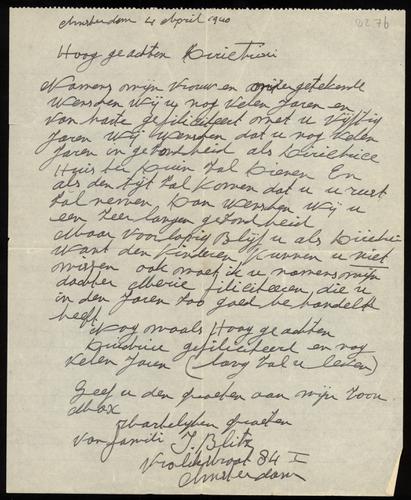 Amsterdam 4 April 1940
8276
Hoog geachten Dirictrise
Namens mijn vrouw en ondergetekende
wenschen wij u nog velen Jaren en
van harte gefiliciteert met u vijftig
Jaren Wij wenschen dat u nog velen
Jaren in gezondheid als Dirictrice
Huis ter Duin zal dienen En
als den tijt zal komen dat u u rust
zal nemen Dan wenschen wij u
een zeer langen gezondheid
Maar voorlopig Blijf u als Dirictrice
want den kinderen kunnen u niet
missen ook moet ik u namens mijn
dochter filiciteeren, die u
in den Jaren zoo goed behandelt
heeft
Nog maals Hoog geachten
Dirictrice gefiliciteerd en nog
velen Jaren (lang zal u leven)
Geef u den groeten aan mijn zoon
Max
Hartelijken groeten
van familie J. Blitz
Vrolikstraat 84 I
Amsterdam